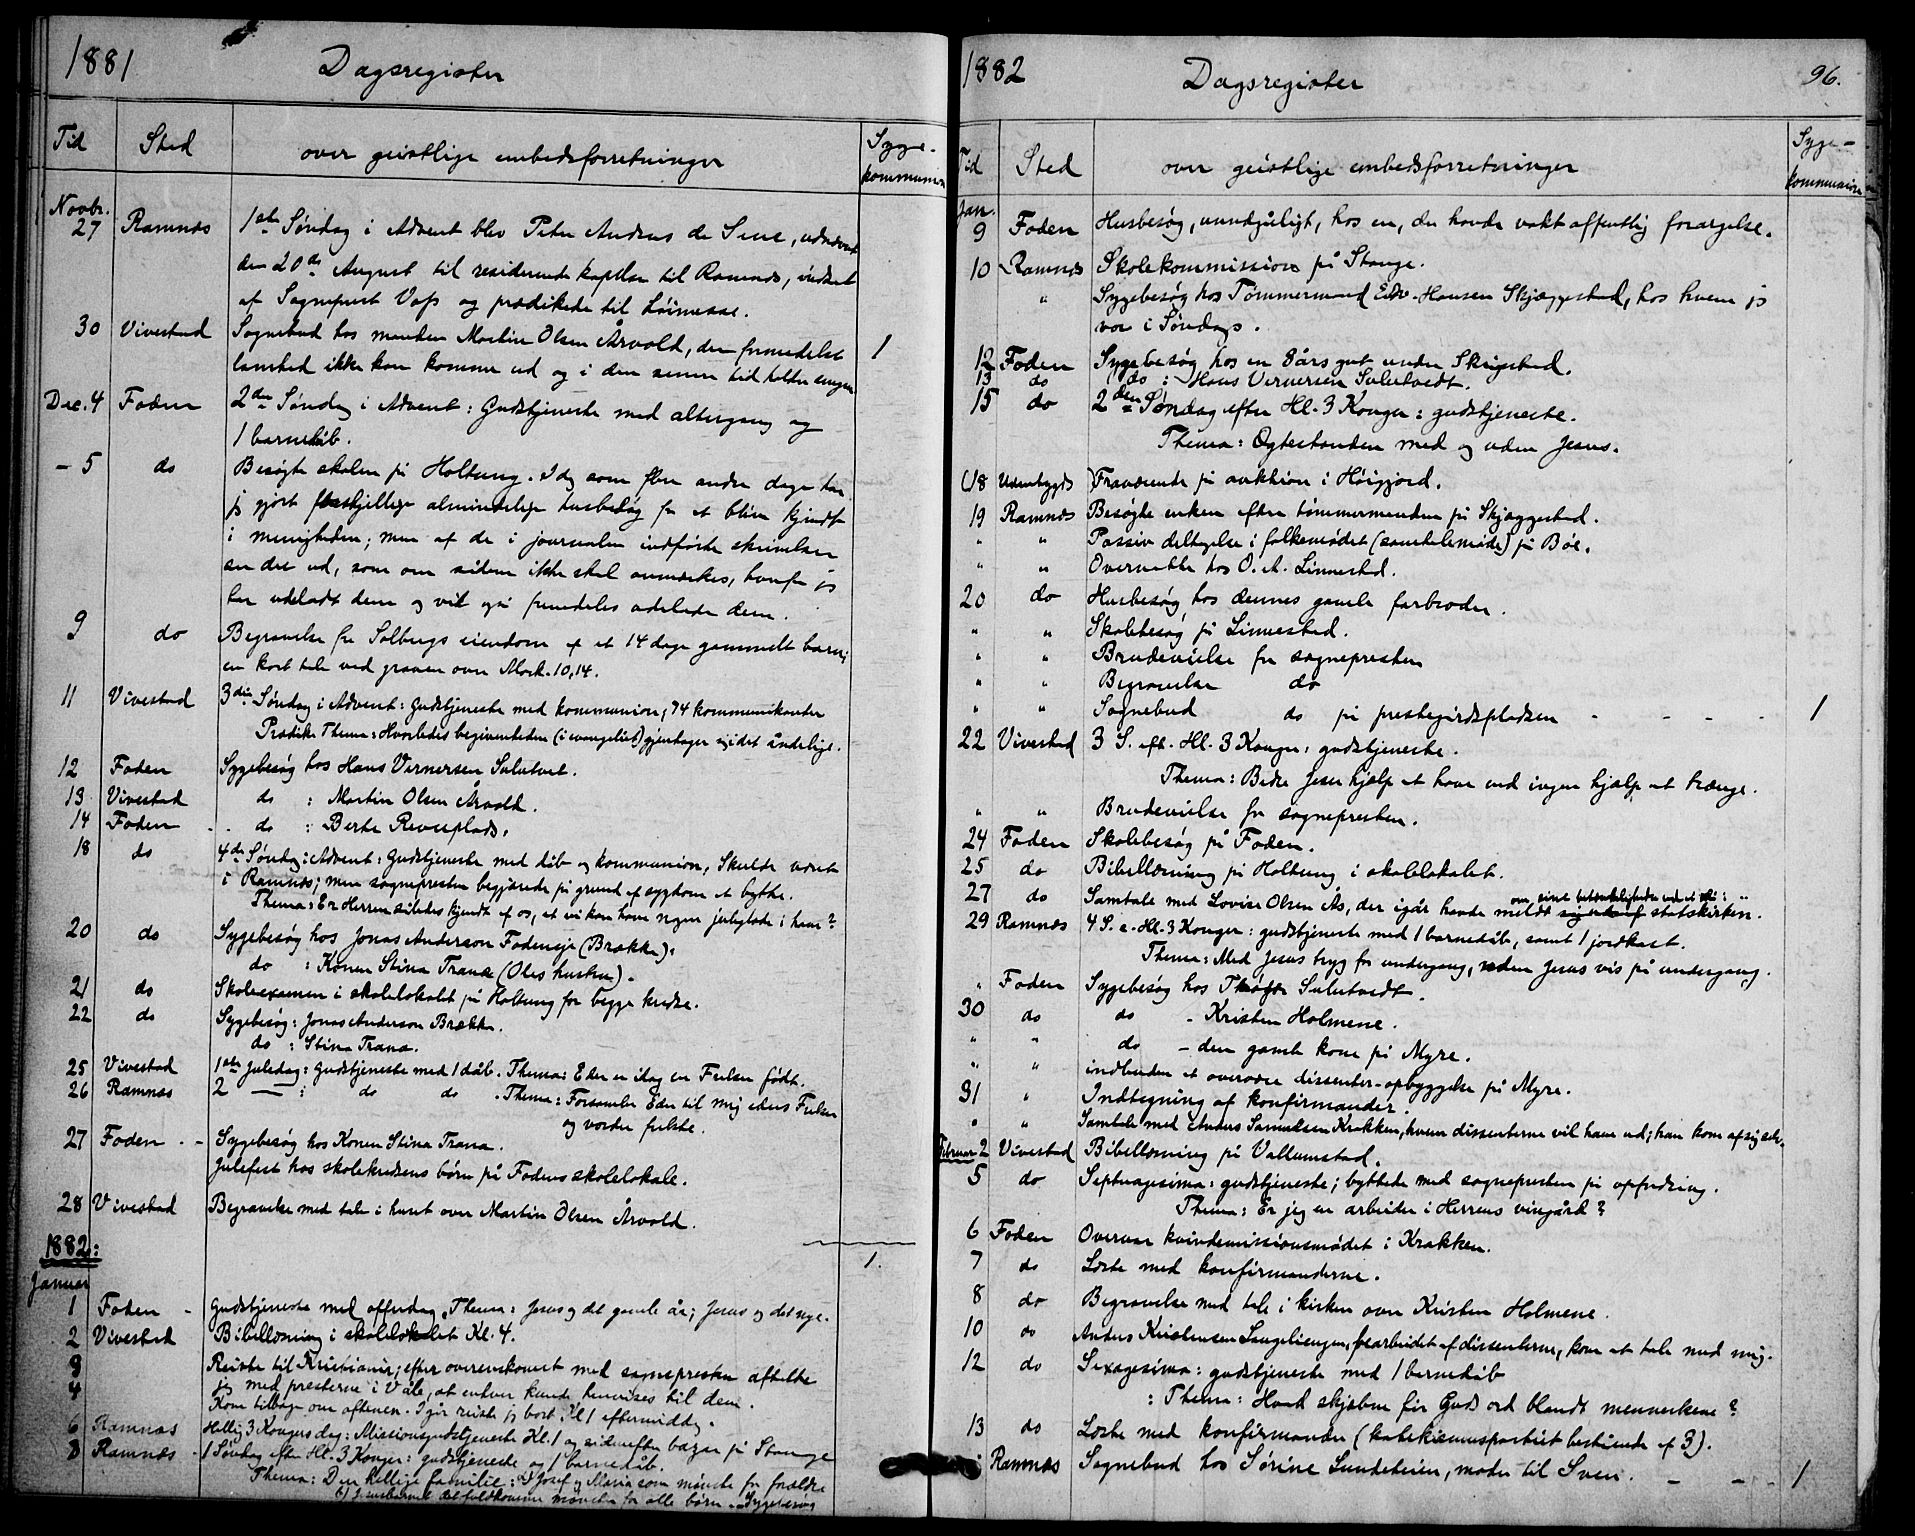 1881
Dagsregister
Tid Sted over geistlige embedsforretninger Syge-
kommunion
Novbr.
27 Ramnæs 1ste Søndag i Advent blev Peter Andreas de Seve, udnævnt
den 20de August til residerende kapellan til Ramnæs, indsat
af Sognepræst Voss og prædikede til Høimesse.
30 Vivestad Sognebud hos manden Martin Olsen Årvold, der formedelst 1
lamhed ikke kan komme ud og i den senere tid holder sengen
Dec. 4 Foden 2den Søndag i Advent: Gudstjeneste med altergang og
1 barnedåb.
- 5 do Besøgte skolen på Holtung. Idag som flere andre dage har
jeg gjort forskjellige almindelige husbesøg for at blive kjendt
i menigheden; men af de i journalen indførte skrivelser
ser det ud, som om sådanne ikke skal anmærkes, hvorfor jeg
har udeladt dem og vil også fremdeles udelade dem.
9 do Begravelse fra Solbergs eiendom af et 14 dage gammelt barn;
en kort tale ved graven over Mark. 10,14.
11 Vivestad 3die Søndag i Advent: Gudstjeneste med kommunion, 74 kommunikanter
Prædik. Thema: Hvorledes begivenheden (i evangeliet) gjentager sig i det åndelige.
12 Foden Sygebesøg hos Hans Vernersen Sulutvet.
13 Vivestad do : Martin Olsen Årvold.
14 Foden do : Berte Revueplads.
18 do 4de Søndag i Advent: Gudstjeneste med dåb og kommunion, Skulde været
i Ramnæs; men sognepresten begjærede på grund af sygdom at bytte.
Thema: Er Herren således kjendt af os, at vi kan have nogen juleglæde i ham?
20 do Sygebesøg hos Jonas Anderson Fodeneje (Brække).
do : Konen Stina Trana (Oles huskon).
21 do Skoleexamen i skolelokalet på Holtung for begge kredse.
22 do Sygebesøg: Jonas Anderson Brække.
do : Stina Trana.
25 Vivestad 1ste Juledag: Gudstjeneste med 1 dåb. Thema: Eder er idag en Frelser født.
26 Ramnæs 2 — : do do . Thema: Forsamler Eder til mig eders Frelser
og vorder frelste.
27 Foden - - Sygebesøg hos Konen Stina Trana.
Julefest hos skolekredsens børn på Fodens skolelokale.
28 Vivestad Begravelse med tale i huset over Martin Olsen Årvold.
1882: 1.
Januar
1 Foden - Gudstjeneste med offerdag. Thema: Jesus og det gamle år; Jesus og det nye.
2 Vivestad Bibellæsning i skolelokalet Kl. 4.
3 Reiste til Kristiania; efter overenskomst med sognepresten aftalte
4 jeg med presterne i Våle, at enhver kunde henvises til dem.
Kom tilbage om aftenen. Igår reiste jeg bort Kl 1 eftermiddag.
6 Ramnæs Hellig 3 Kongers dag: Missionsgudstjeneste Kl. 1 og sidenefter bazar på Stange
8 Ramnæs - 1 Søndag efter Hl. 3 Konger: gudstjeneste og 1 barnedåb.
Thema: Den hellige familie: a) Josef og Maria som mønster for forældre
b) Jesusbarnet det fuldkomne mønster for alle børn. - Sygebesøg
1882
Dagsregister
96.
Tid Sted over geistlige embedsforretninger Syge-
kommunion
Jan.
9 Foden Husbesøg, uundgåeligt, hos en, der havde vakt offentlig forargelse.
10 Ramnæs Skolekommission på Stange.
" Sygebesøg hos Tømmermand Edv. Hansen Skjæggestad, hos hvem jeg
var i Søndags.
12 Foden Sygebesøg hos en 8års gut under Skrigstad.
13 do do : Hans Vernersen Sulutvedt.
15 do 2den Søndag efter Hl. 3 Konger: gudstjeneste.
Thema: Ægtestanden med og uden Jesus.
(18 Udenbygds Fraværende på auktion i Høigjord.
19 Ramnæs Besøgte enken efter tømmermanden på Skjæggestad.
" " Passiv deltagelse i folkemødet (samtalemøde) på Bøe.
" " Overnatte hos O. A. Linnestad.
20 do Husbesøg hos dennes gamle farbroder.
" " Skolebesøg på Linnestad.
" " Brudevielse for sognepresten
" " Begravelse do
" " Sognebud do på prestegårdspladsen - - - - 1
22 Vivestad 3 S. eft. Hl. 3 Konger: gudstjeneste.
Thema: Bedre Jesu hjælp at have end ingen hjælp at trænge.
" " Brudevielse for sognepresten.
24 Foden Skolebesøg på Foden.
25 do Bibellæsning på Holtung i skolelokalet.
om sine betænkeligheder ved at stå i
27 do Samtale med Lovise Olsen Ås, der igår havde meldt sig ud af statskirken.
29 Ramnæs 4 S. e. Hl. 3 Konger: gudstjeneste med 1 barnedåb, samt 1 jordkast.
Thema: Med Jesus tryg for undergang, uden Jesus vis på undergang.
" Foden Sygebesøg hos Sulutvedt.
30 do do - Kristen Holmene.
" " do - den gamle kone på Myre.
" " indbuden at overvære dissenter-opbyggelse på Myre.
31 " Indtegning af konfirmander.
" " Samtale med Anders Samuelsen Krakken, hvem dissenterne vil have ud; han kom af sig selv.
Februar 2 Vivestad Bibellæsning på Vallumstad.
5 do Septuagesima: gudstjeneste; byttede med sognepresten på opfordring.
Thema: Er jeg en arbeider i Herrens vingård?
6 Foden Overvar kvindemissionsmødet i Krakken.
7 do Læste med konfirmanderne.
8 do Begravelse med tale i kirken over Kristen Holmene.
10 do Anders Kristensen Langeliengen, bearbeidet af dissenterne, kom at tale med mig.
12 do Sexagesima: gudstjeneste med 1 barnedåb
: Thema: Hvad skjæbne får Guds ord blandt menneskene?
13 do Læste med konfirmander (katekismuspartiet bestående af 3).
" Ramnæs Sognebud hos Sørine Lundeteien, moder til Sven. - - - 1